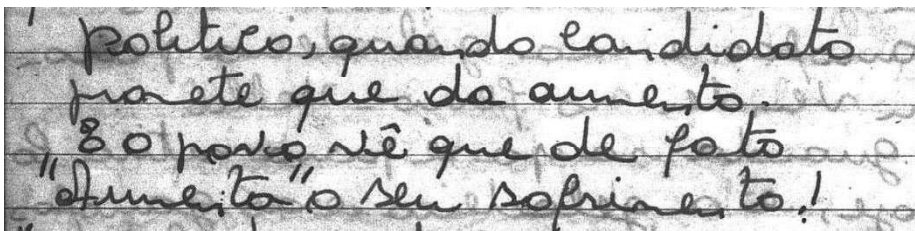 político, quando candidato
promete que da aumento.
E o povo vê que de fato
"Aumenta" o seu sofrimento!